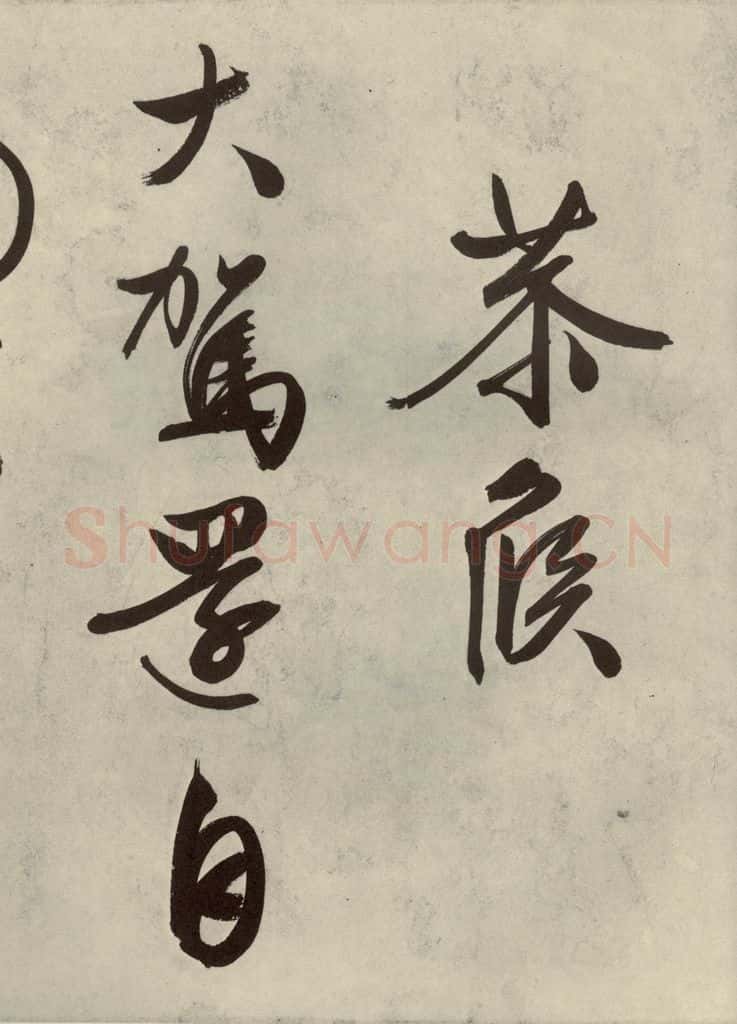 恭候
大駕還自
Shufawang.CN